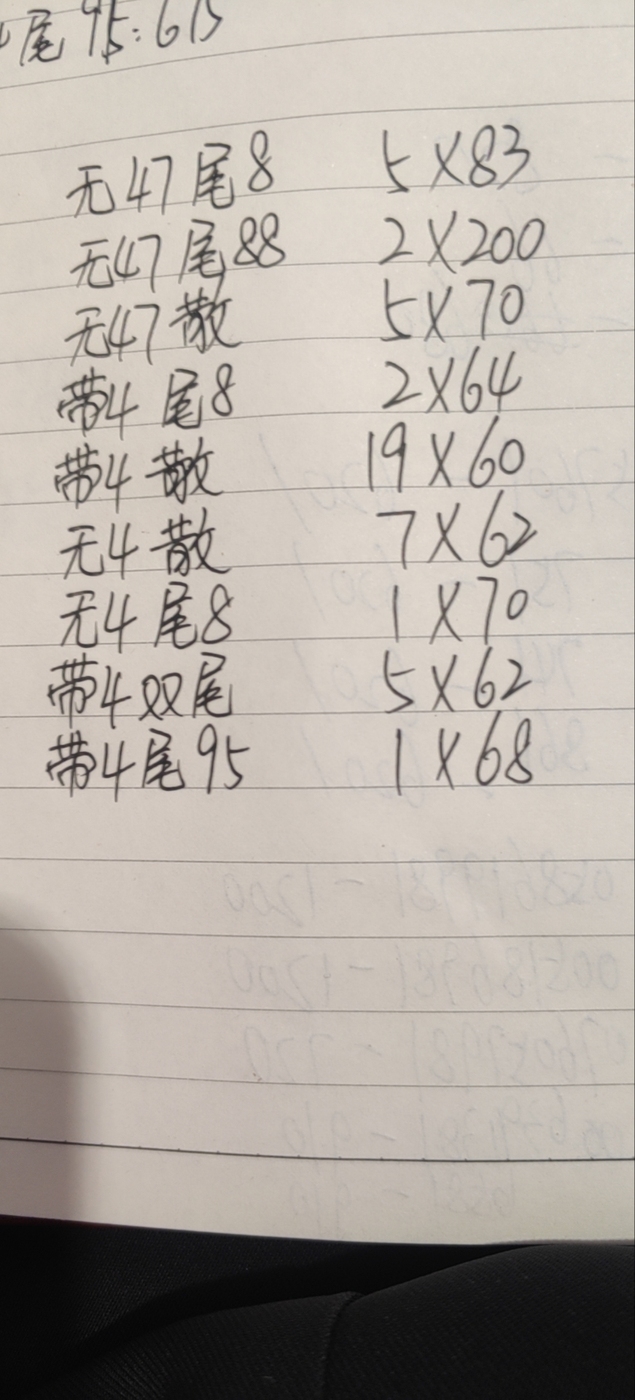 尾95:615
无47尾8 5X83
无47尾88 2X200
无47散 5X70
带4尾8 2X64
带4散 19X60
无4散 7X62
无4尾8 1X70
带4双尾 5X62
带4尾95 1X68